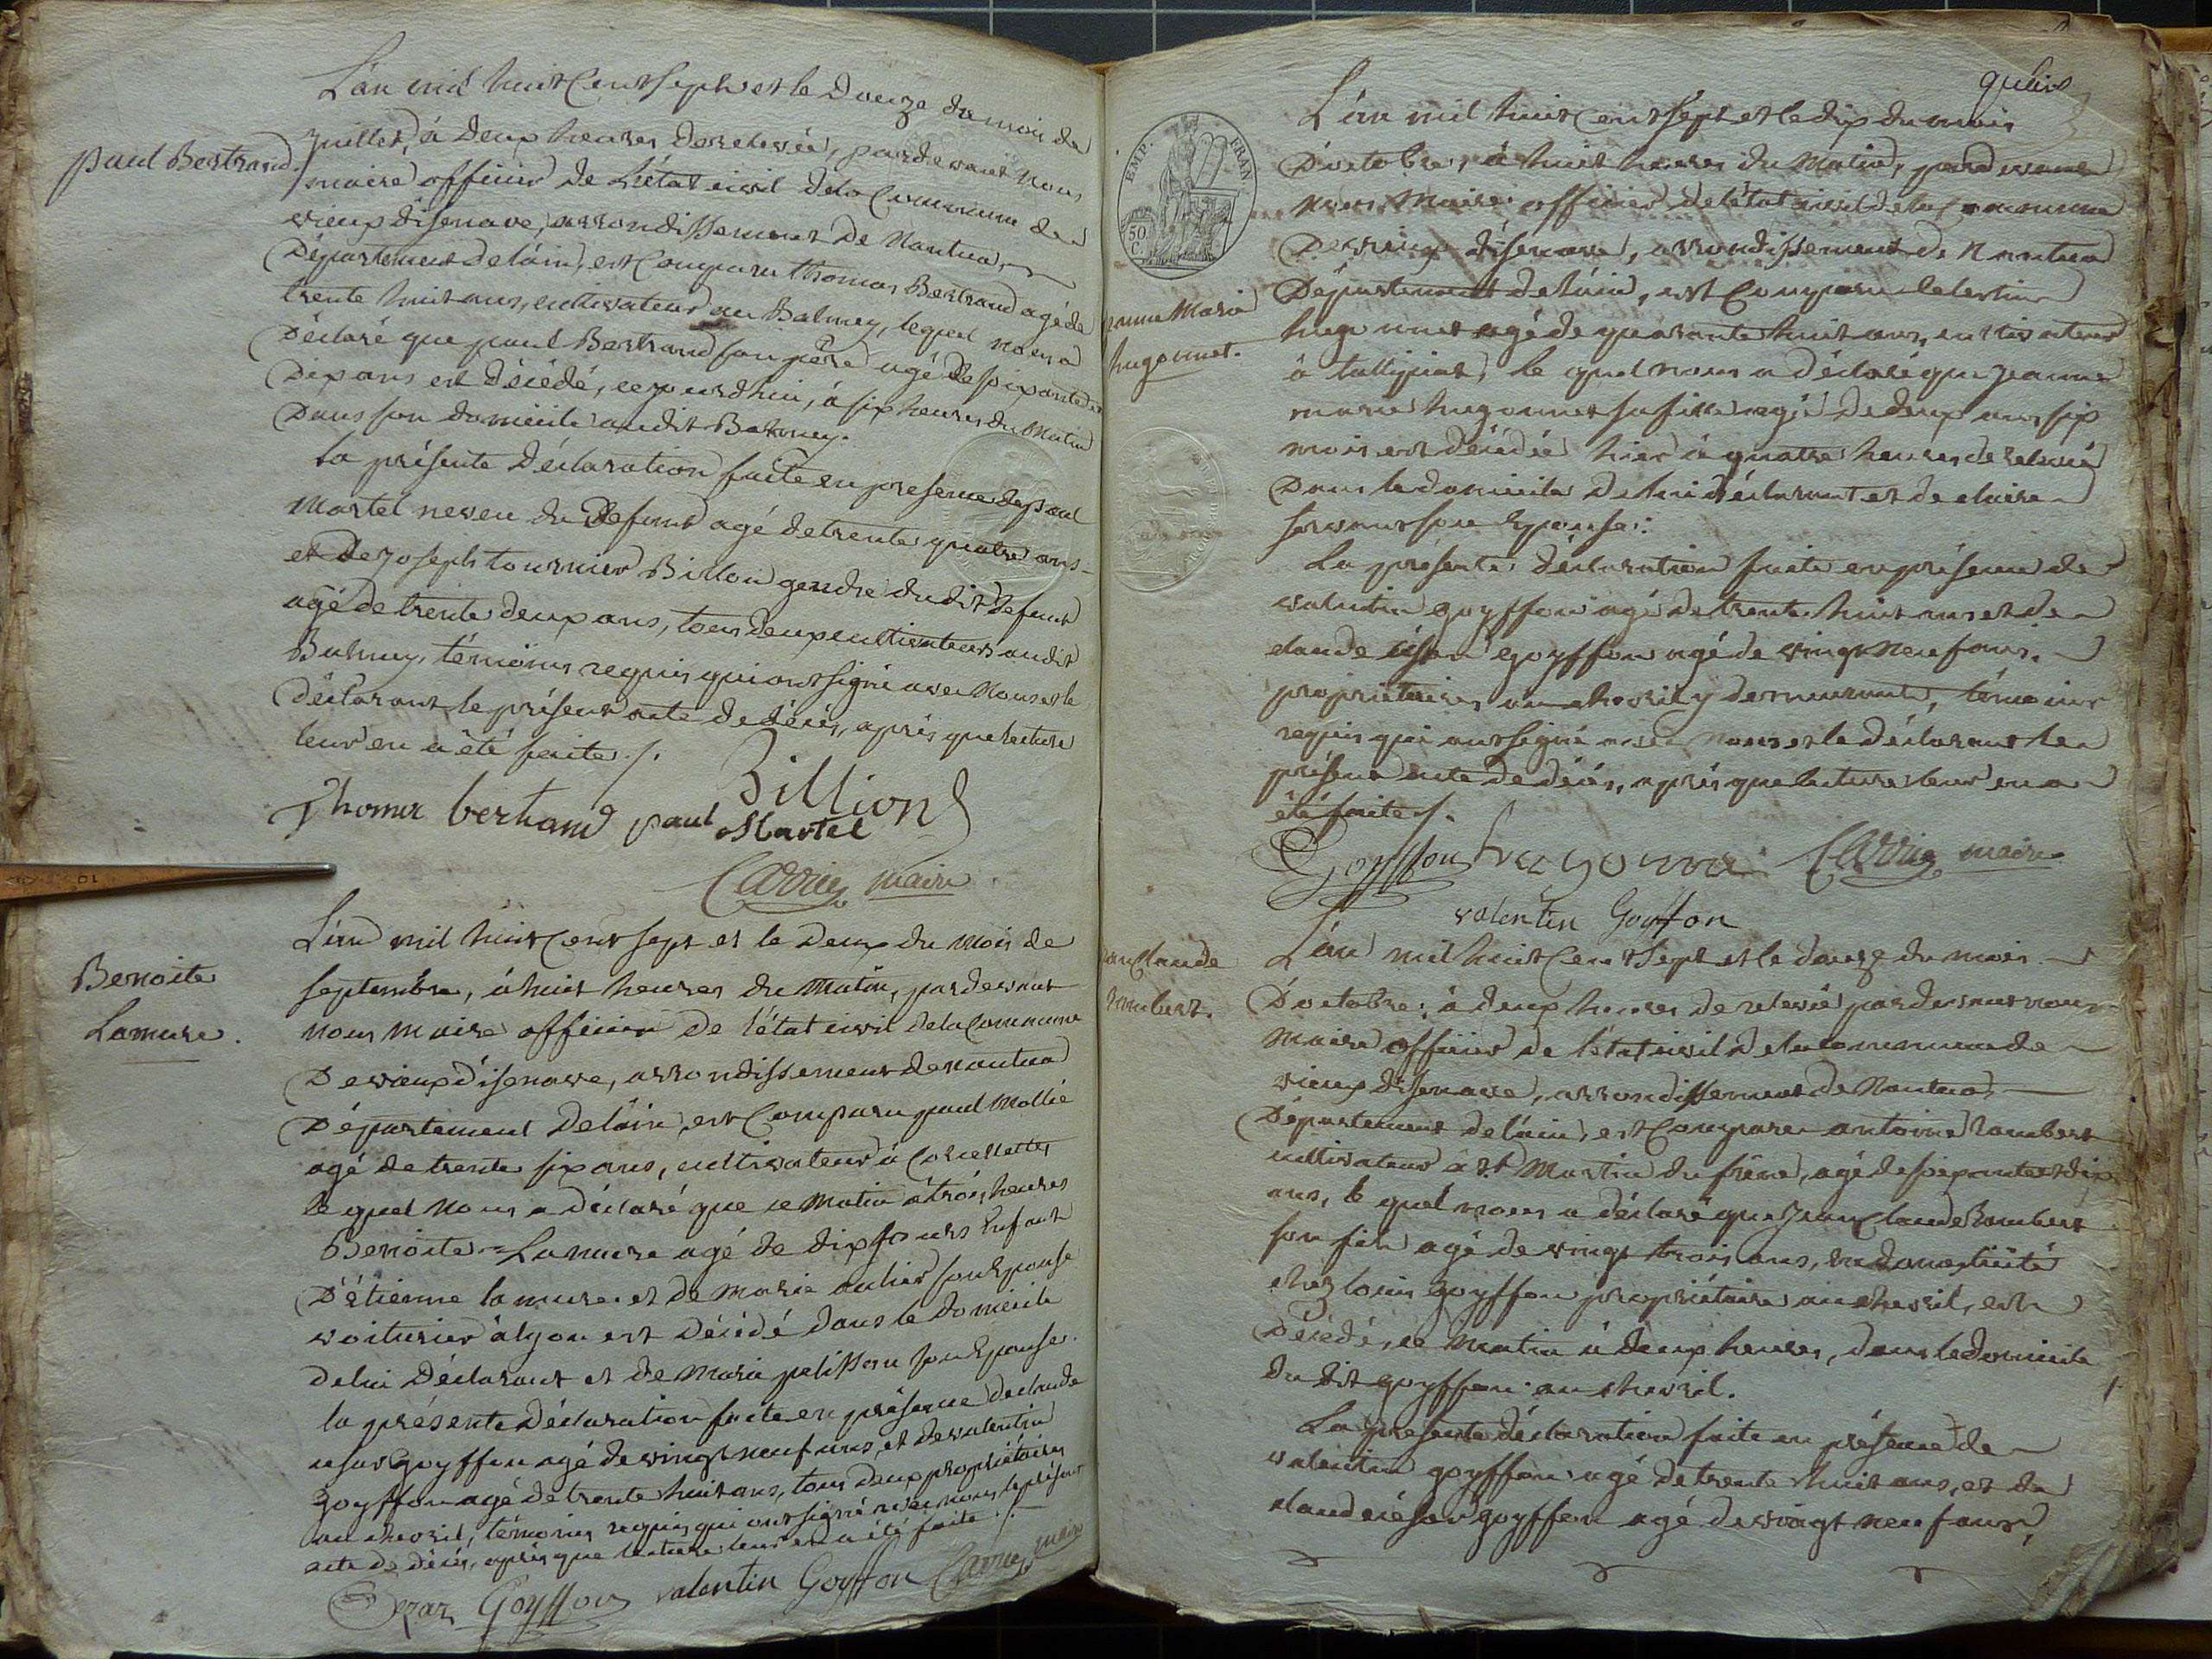 L'an mil huit cent sept et le douze du mois de
juillet, à deux heures de relevée, pardevant nous
Paul Bertrand.
maire officier de l'état civil de la commune de
vieux d'isenave, arrondissement de Nantua,
Département de l'ain, est comparu thomas Bertrand agé de
trente huit ans, cultivateur au Balmey, lequel nous a
Déclaré que paul Bertrand son père agé de soixante et
Dix ans est décédé, cejourdhui, à six heures du Matin
Dans son domicile audit Balmey.
La présente Déclaration faite en presence de paul
Martel neveu du Defunt agé de trente quatre ans
et de joseph tournier Billon gendre dudit Defunt
agé de trente deux ans, tous deux cultivateurs audit
Balmey, témoins requis qui ont signé avec Nous et le
déclarant le présent acte de décès, après que lecture
leur en a été faite ./.
Billion
Thomas bertrand paul Martel
Carrier maire
L'an mil huit cent sept et le Deux du mois de
Benoite
Lamure.
septembre, à huit heures du matin, pardevant
nous Maire officier de l'état civil de la Commune
De vieux d'isenave, arrondissement de nantua
Département de l'ain, est Comparu paul Mollié
agé de trente six ans, cultivateur à Corcelettes
le quel nous a déclaré que ce matin à trois heures
Benoite Lamure agé de dix jours Enfant
D'étienne lamure et de Marie son Epouse
voiturier à lyon est Décédé dans le domicile
de lui Déclarant et de Marie pelisson son Epouse.
la présente Déclaration faite en présence de claude
cesar Goyffon agé de vingt neuf ans, et de valentin
Goyffon agé de trente huit ans, tous deux propriétaires
au chevril, témoins requis qui ont signé avec nous le présent
acte de décès, après que lecture leur en a été faite ./.
Cezar Goyffon valentin Goyffon Carrier maire
L'an mil huit cent sept et le dix du mois
D'octobre, à huit heures du Matin, pardevant
nous Maire officier de l'état civil de la commune
De vieux d'isenave, arrondissement de Nantua
EMP. FRAN.
50 C.
Département de l'ain, est Comparu celestin
Jeanne Marie
hugonnet.
hugonnet agé de quarante huit ans, cultivateur
à tallipiat, le quel nous a déclaré que jeanne
marie hugonnet sa fille agé de deux ans six
mois est décédée hier à quatre heures de relevée
Dans le domicile de lui déclarant et de claire
servant son Epouse.
La présente déclaration faite en présence de
valentin goyffon agé de trente huit ans et de
claude césar goyffon agé de vingt neuf ans.
propriétaires au chevril y demeurant, témoins
requis qui ont signé avec nous et le déclarant le
présent acte de décès, après que lecture leur en a
été faite ./.
Goyffon hugonnet Carrier maire
valentin Goyffon
L'an mil huit cent sept et le douze du mois
Jean Claude
humbert.
D'octobre, à deux heures de relevée pardevant nous
Maire officier de l'état civil de la commune de
vieux d'isenave, arrondissement de Nantua
Département de l'ain, est Comparu antoine humbert
cultivateur à St. Martin du frêne, agé de soixante et dix
ans, le quel nous a déclaré que Jean Claude humbert
son fils agé de vingt trois ans, en domesticité
chez louis goyffon propriétaire au chevril, est
Décédé, ce matin à deux heures, dans le domicile
du dit goyffon au chevril.
La présente déclaration faite en présence de
valentin goyffon agé de trente huit ans, et de
claude césar goyffon agé de vingt neuf ans,